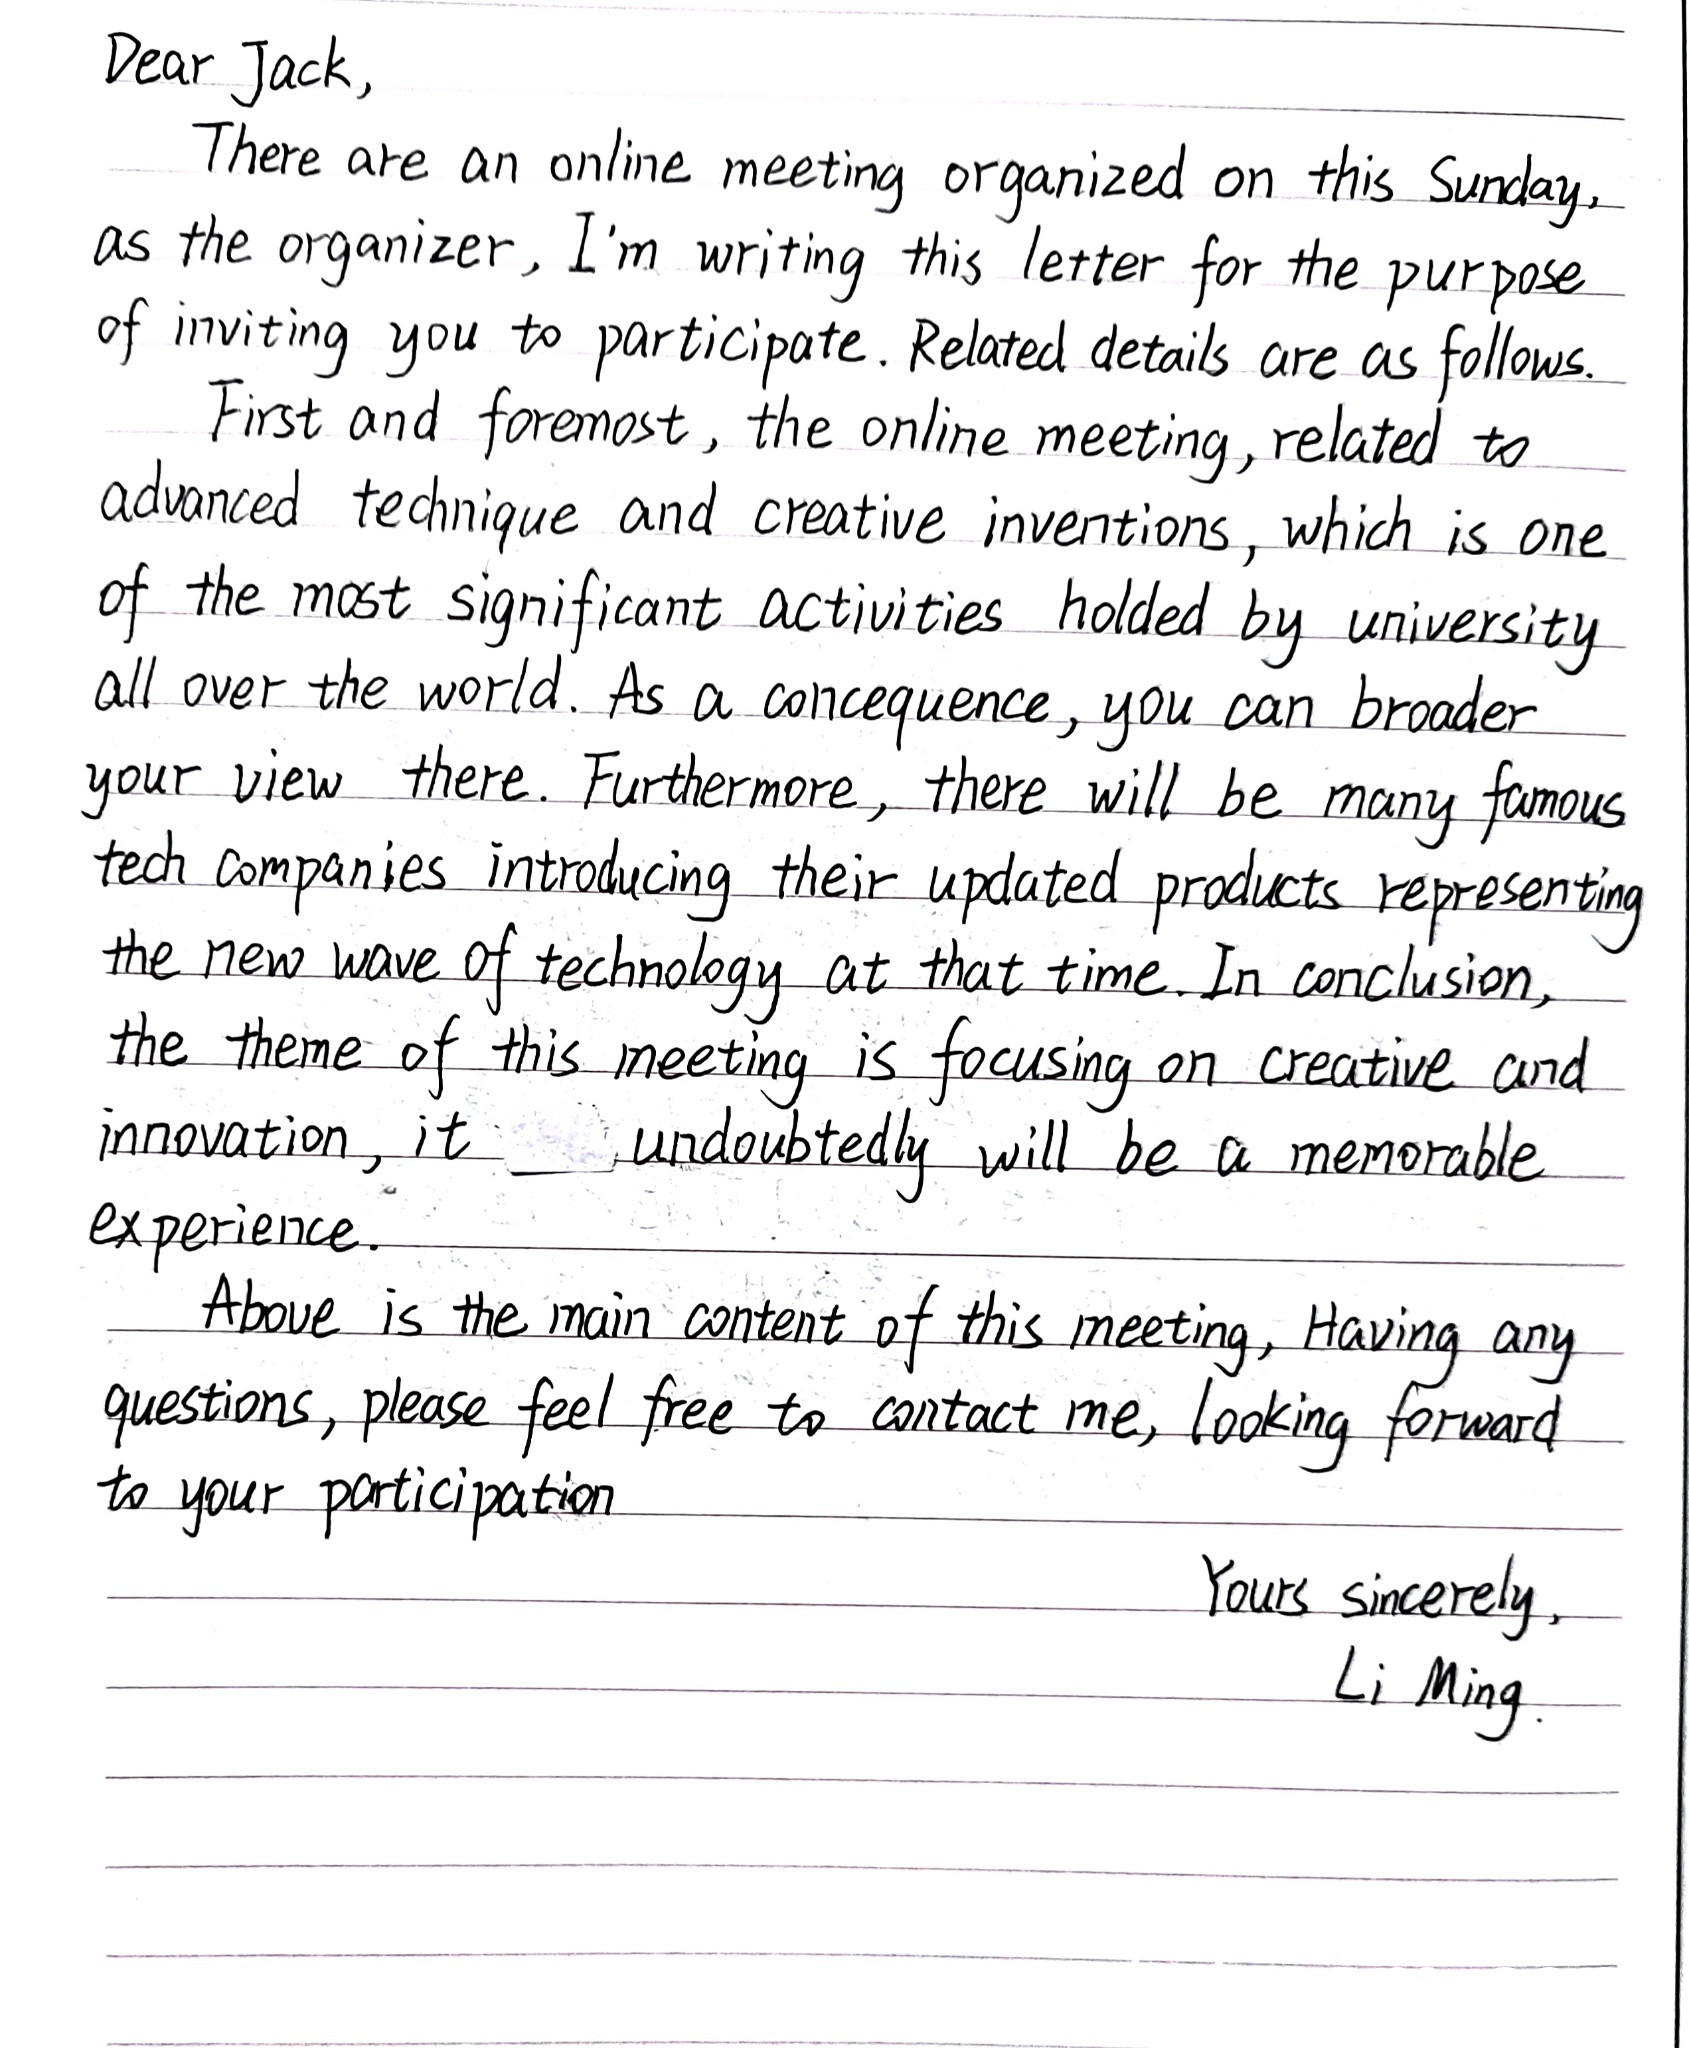 Dear Jack,
There are an online meeting organized on this Sunday,
as the organizer, I'm writing this letter for the purpose
of inviting you to participate. Related details are as follows.
First and foremost, the online meeting, related to
advanced technique and creative inventions, which is one
of the most significant activities holded by university
all over the world. As a concequence, you can broader
your view there. Furthermore, there will be many famous
tech companies introducing their updated products representing
the new wave of technology at that time. In conclusion,
the theme of this meeting is focusing on creative and
innovation, it undoubtedly will be a memorable
experience.
Above is the main content of this meeting, Having any
questions, please feel free to contact me, looking forward
to your participation
Yours sincerely,
Li Ming.